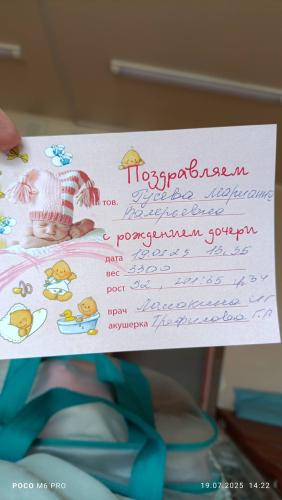 Поздравляем
тов. Гусева Марианна
Валерьевна
с рождением дочери
дата 19.07.25 13.55
вес 3300
рост 52
врач
акушерка Трефилова Г.А
POCO M6 PRO
19.07.2025 14:22